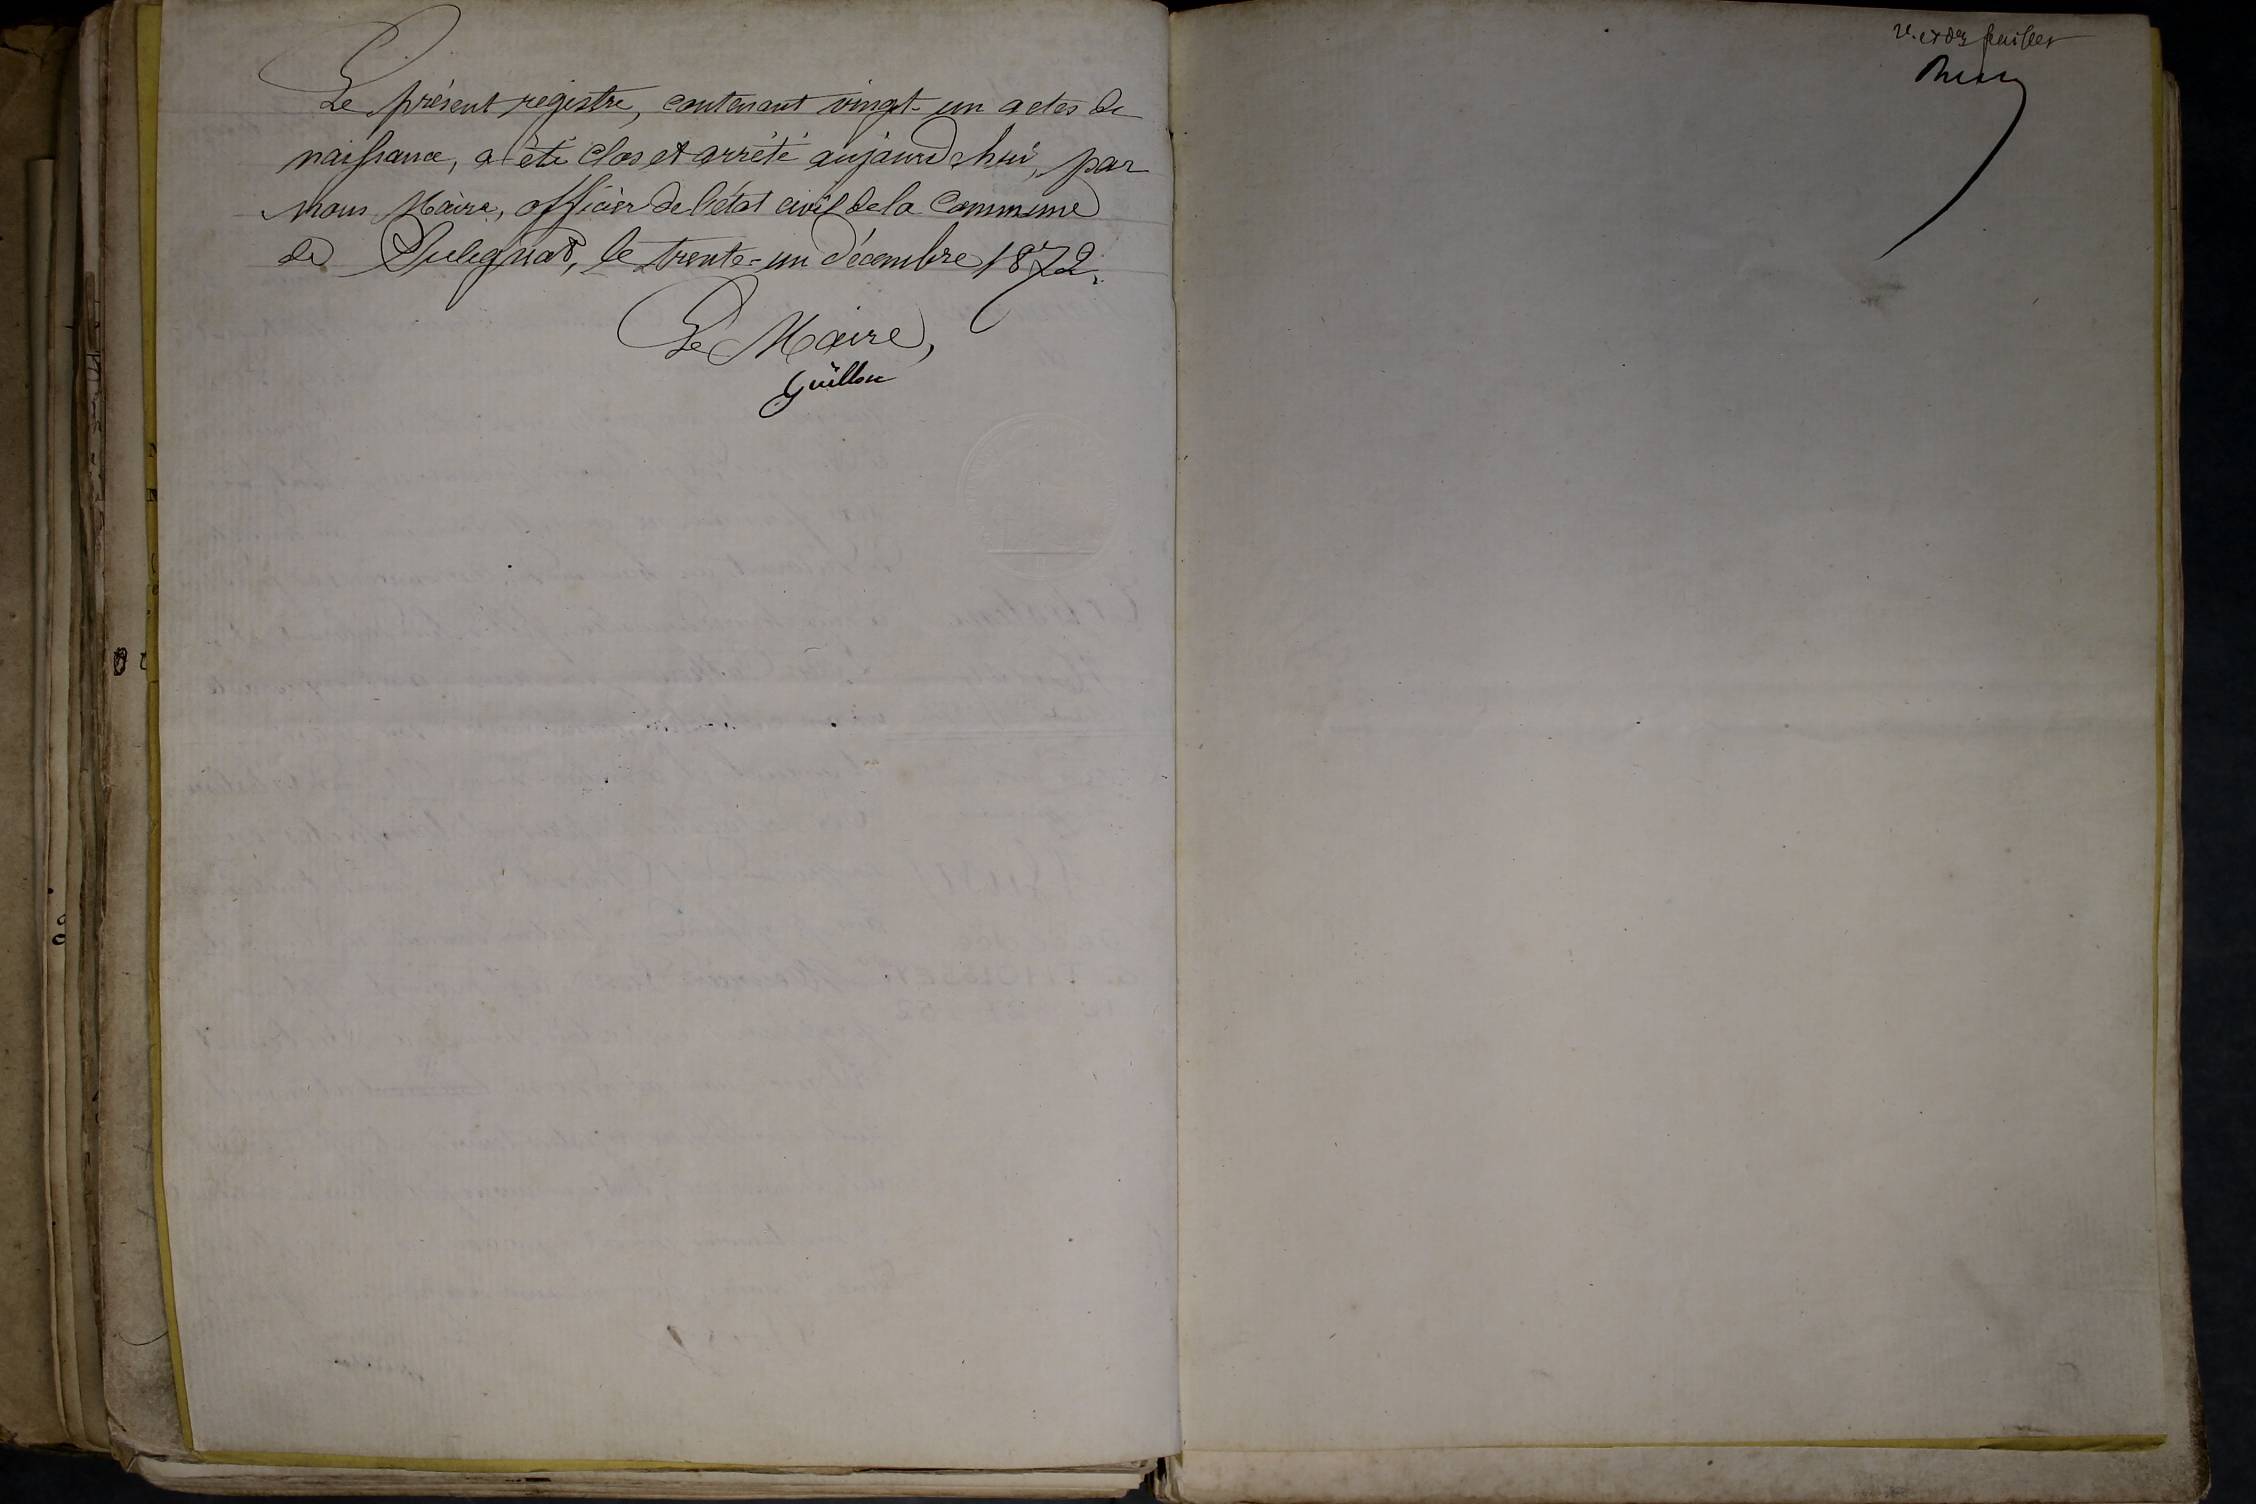 Le présent registre, contenant vingt-un actes de
naissance, a été clos et arrêté aujourd'hui, par
nous Maire, officier de l'état civil de la commune
de Sulignat, le trente-un décembre 1872.
Le Maire,
Guillon
et der feuillet